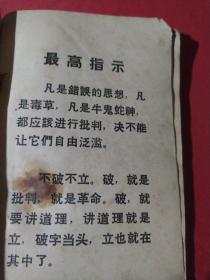 最高指示
凡是錯誤的思想，凡
是毒草，凡是牛鬼蛇神，
都应該进行批判，决不能
让它們自由泛滥。
不破不立。破，就是
批判，就是革命。破，就
要讲道理，讲道理就是
立，破字当头，立也就在
其中了。